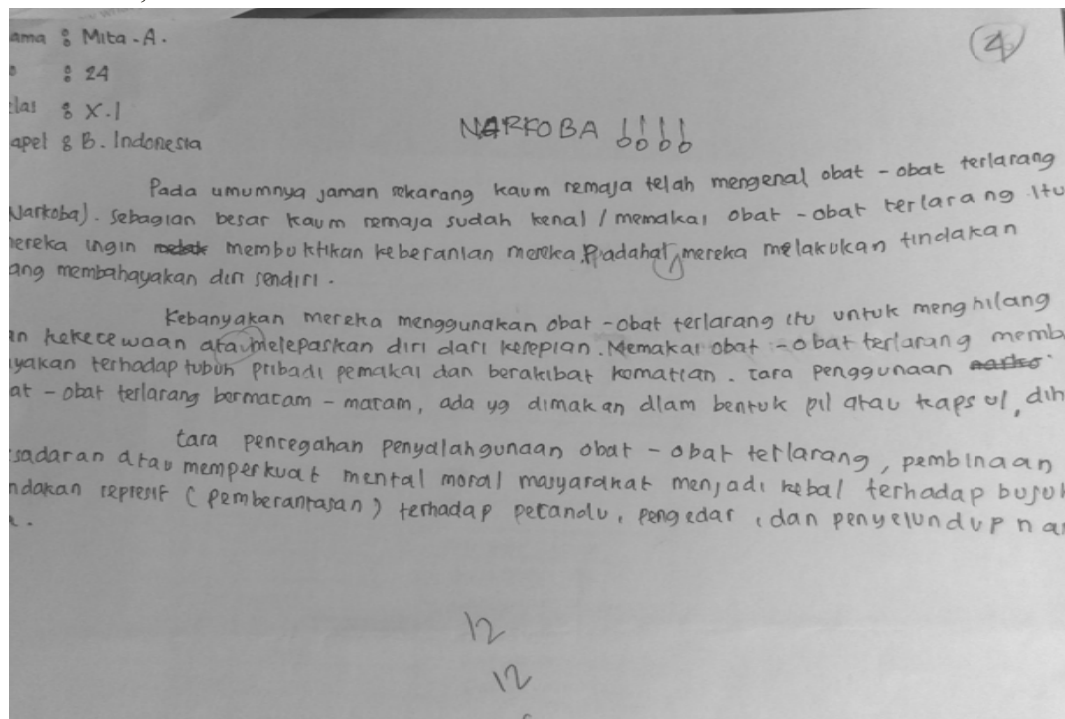 ama : Mita - A.
④
: 24
elas : X.1
apel : B. Indonesia
NARKOBA !!!!
Pada umumnya jaman sekarang kaum remaja telah mengenal obat - obat terlarang
Narkoba). Sebagian besar kaum remaja sudah kenal / memakai obat - obat terlarang itu
mereka ingin membuktikan keberanian mereka. Padahal, mereka melakukan tindakan
ang membahayakan diri sendiri.
Kebanyakan mereka menggunakan obat - obat terlarang itu untuk menghilang
an kekecewaan atau meleparkan diri dari kesepian. Memakai obat - obat terlarang memb
yakan terhadap tubuh pribadi pemakai dan berakibat kematian. cara penggunaan
at - obat terlarang bermacam - macam, ada yg dimakan dlam bentuk pil atau kapsul, dih
cara pencegahan penyalahgunaan obat - obat terlarang, pembinaan
sadaran atau memperkuat mental moral masyarakat menjadi kebal terhadap bujuk
ndakan represif (pemberantasan) terhadap pecandu, pengedar, dan penyelundup na
12
12